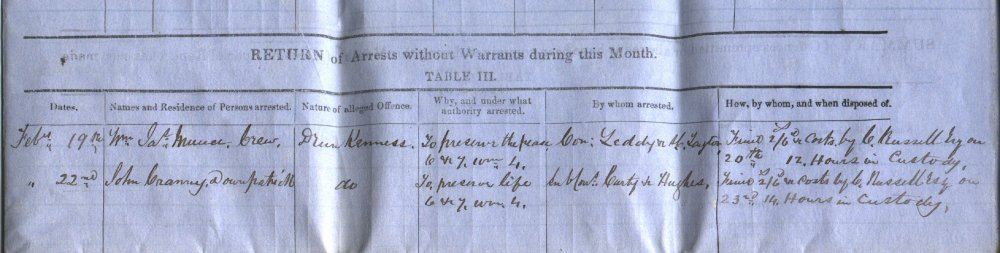 RETURN of Arrests without Warrants during this Month.
TABLE III.
Dates. Names and Residence of Persons arrested. Nature of alleged Offence. Why, and under what authority arrested. By whom arrested. How, by whom, and when disposed of.
Feby 19th Wm Jas Crew. Drunkenness. To preserve the peace Con: Leddy & Fined 2/6 & Costs. by C. Russell Esq on
6 & 7, Wm 4. 20th 12. Hours in Custody,
" 22nd John Cranny, Downpatrick do To, preserve life Carty & Hughes, Fined 2/6 & Costs by C. Russell Esq on
6 & 7, Wm 4. 23rd 14. Hours in Custody,